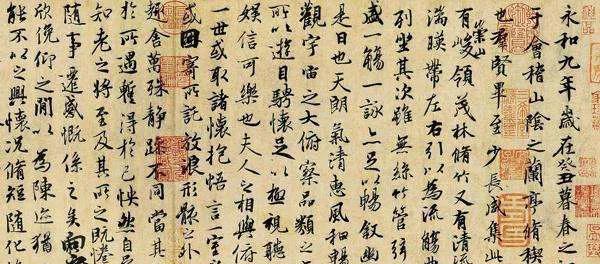 永和九年歲在癸丑暮春之初
于會稽山陰之蘭亭脩稧
也群賢畢至少長咸集此
有崇山峻領茂林脩竹又有清流
湍暎帶左右引以為流觴曲
列坐其次雖無絲竹管弦
盛一觴一詠亦足以暢敘幽
是日也天朗氣清惠風和暢
觀宇宙之大俯察品類之
所以遊目騁懷足以極視聽
娛信可樂也夫人之相與俯
一世或取諸懷抱悟言一室
或因寄所託放浪形骸之外
趣舍萬殊靜躁不同當其
於所遇蹔得於己怏然自
知老之將至及其所之既惓
隨事遷感慨係之矣向之
欣俛仰之閒以為陳迹猶
能不以之興懷況脩短隨化